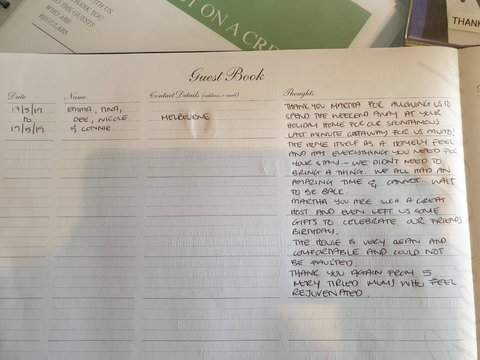 THANK YOU
WHO
THE GUESTS
REGULARS
T ON A CRE
THANK
Guest Book
Date Name Contact Details (address, e-mail) Thoughts
17/5/19 EMMA, TINA, MELBOURNE
TO DEE, NICOLE
19/5/19 & CONNIE
THANK YOU MARTHA FOR ALLOWING US TO
SPEND THE WEEKEND AWAY AT YOUR
HOLIDAY HOME FOR OUR SPONTANEOUS
LAST MINUTE GETAWAY FOR US MUMS!
THE HOME ITSELF AS A HOMELY FEEL
AND HAS EVERYTHING YOU NEED FOR
YOUR STAY - WE DIDN'T NEED TO
BRING A THING. WE ALL HAD AN
AMAZING TIME & CANNOT WAIT
TO BE BACK.
MARTHA YOU ARE SUCH A GREAT
HOST AND EVEN LEFT US SOME
GIFTS TO CELEBRATE OUR FRIENDS
BIRTHDAY.
THE HOUSE IS VERY CLEAN AND
COMFORTABLE AND COULD NOT
BE FAULTED.
THANK YOU AGAIN FROM 5
VERY TIRED MUMS WHO FEEL
REJUVENATED.